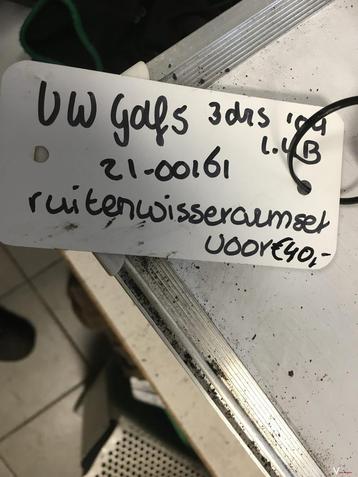 VW Golf 5 3drs '04
1.4B
21-00161
ruitenwisserarmset
voor €40,-